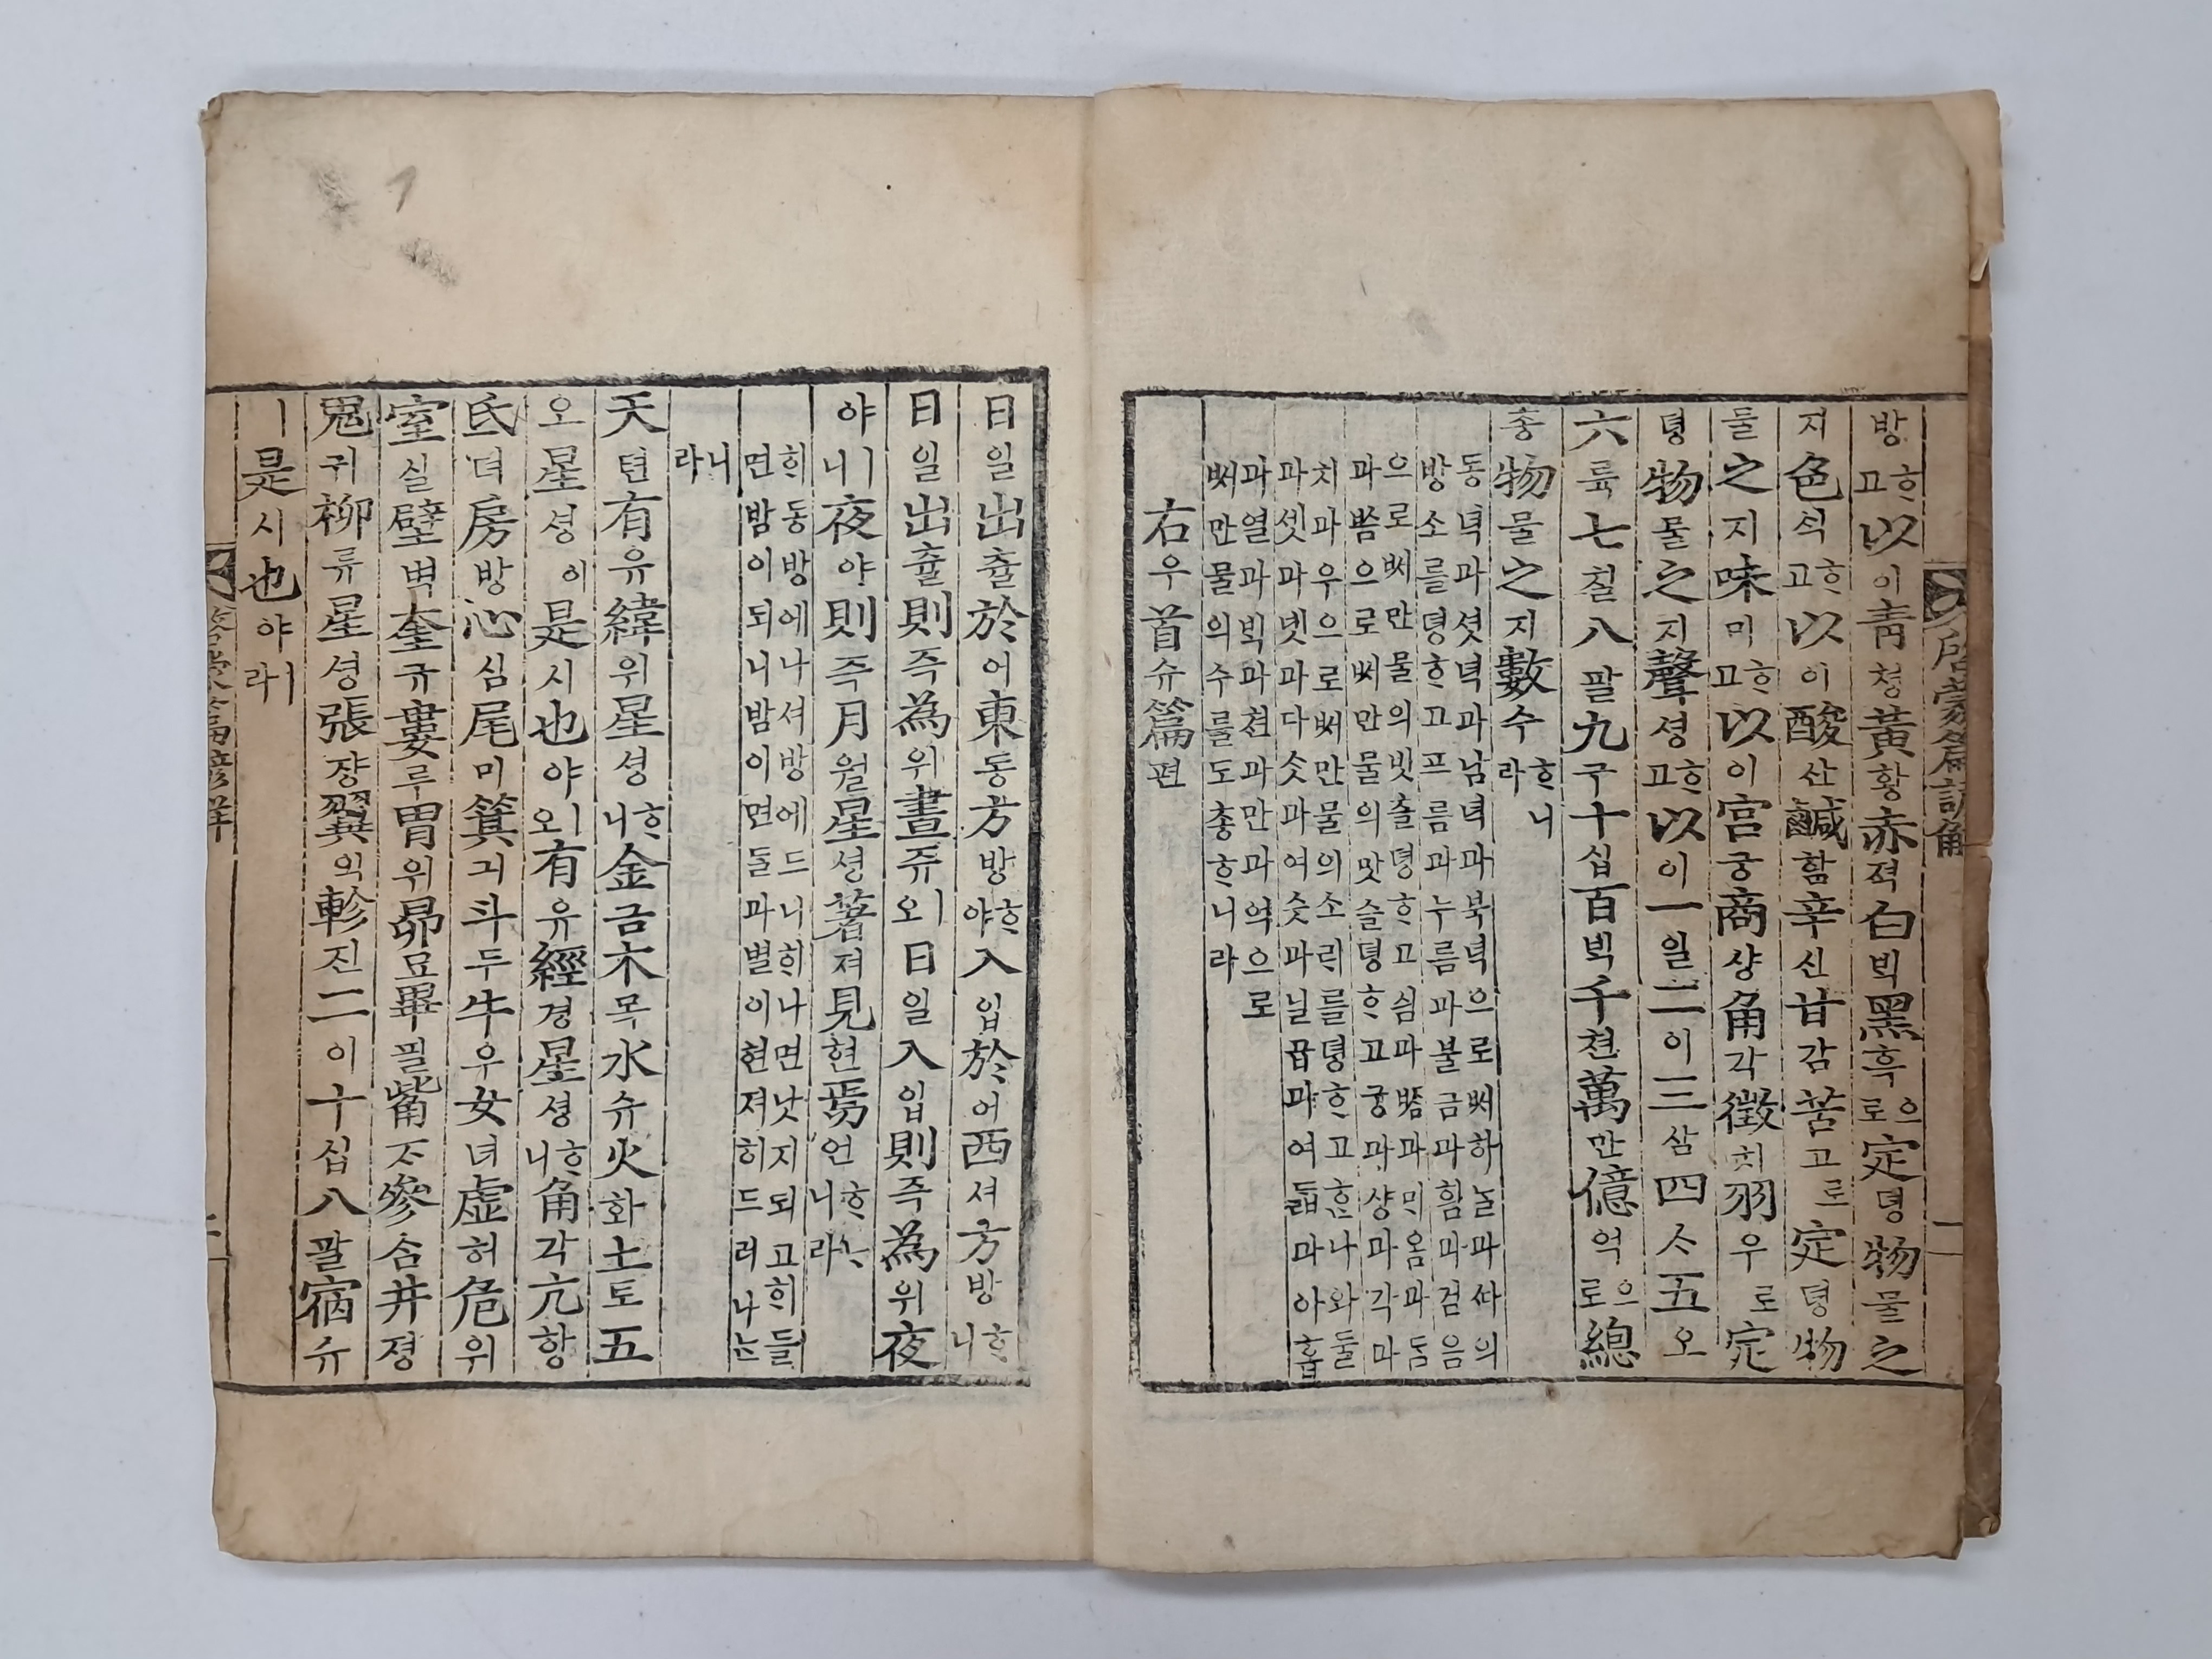 啓蒙篇諺解 二
방ᄒᆞ고以이靑쳥黃황赤젹白ᄇᆡᆨ黑흑으로定뎡物믈之
지色ᄉᆡᆨᄒᆞ고以이酸산鹹함辛신甘감苦고로定뎡物
믈之지味미ᄒᆞ고以이宮궁商샹角각徵치羽우로定
뎡物믈之지聲셩ᄒᆞ고以이一일二이三삼四ᄉᆞ五오
六륙七칠八팔九구十십百ᄇᆡᆨ千쳔萬만億억으로總
총物믈之지數수ᄒᆞ니라
동녁과셧녁과남녁과북녁으로ᄡᅥ하ᄂᆞᆯ과ᄯᅡ의
방소를뎡ᄒᆞ고프름과누름과불금과힘과검음
으로ᄡᅥ만물의빗츨뎡ᄒᆞ고싐과ᄧᆞᆷ과ᄆᆡ옴과ᄃᆞᆷ
과ᄡᅳᆷ으로ᄡᅥ만물의맛슬뎡ᄒᆞ고궁과샹과각과
치과우으로ᄡᅥ만물의소리를뎡ᄒᆞ고ᄒᆞᆫ나와둘
파셋파넷파다ᄉᆞᆺ파여ᄉᆞᆺ파닐곱파여ᄃᆞᆲ파아홉
파열과ᄇᆡᆨ과쳔과만과억으로
ᄡᅥ만물의수를도총ᄒᆞ니라
右우首슈篇편
日일出츌於어東동方방ᄒᆞ야入입於어西셔方방ᄒᆞ니
日일出츌則즉爲위晝쥬ㅣ오日일入입則즉爲위夜
야ㅣ니夜야則즉月월星셩著져見현焉언ᄒᆞᄂᆞ니라
ᄒᆡ동방에나셔방에드니ᄒᆡ나면낫지되고ᄒᆡ들
면밤이되니밤이면ᄃᆞᆯ과별이현져히드러나ᄂᆞᆫ
니라
天텬有유緯위星셩ᄒᆞ니金금木목水슈火화土토五
오星셩이是시也야ㅣ오有유經경星셩ᄒᆞ니角각亢항
氐뎌房방心심尾미箕긔斗두牛우女녀虛허危위
室실壁벽奎규婁루胃위昴묘畢필觜ᄌᆞ參ᄉᆞᆷ井졍
鬼귀柳류星셩張쟝翼익軫진二이十십八팔宿슈
ㅣ是시也야ㅣ라
啓蒙篇諺解